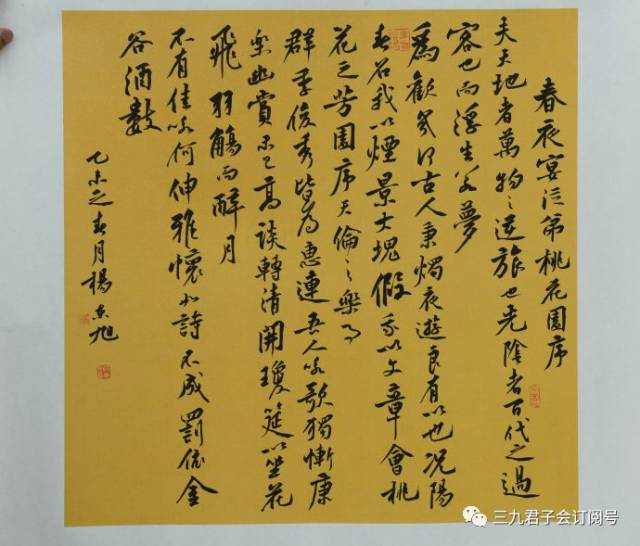 春夜宴従弟桃花園序
夫天地者萬物之逆旅也光陰者百代之過
客也而浮生若夢
爲歡幾何古人秉燭夜遊良有以也況陽
春召我以煙景大塊假我以文章會桃
花之芳園序天倫之樂事
群季俊秀皆為惠連吾人詠歌獨慚康
樂幽賞未已高談轉清開瓊筵以坐花
飛羽觴而醉月
不有佳詠何伸雅懷如詩不成罰依金
谷酒數
乙未之春月楊東旭
三九君子会订阅号